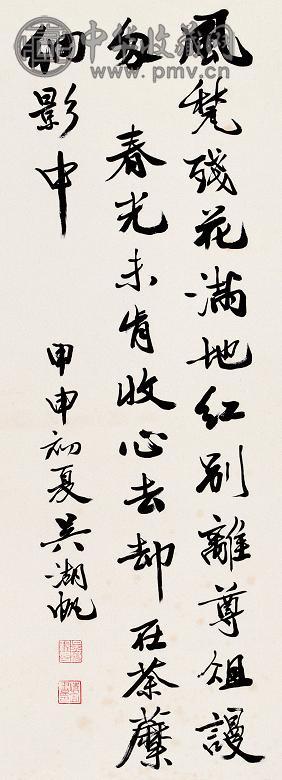 中华收藏网
www.pmv.cn
風殘花滿地紅別離尊俎謾
匆春光未肯收心去却在荼蘼
影中
甲申初夏吳湖帆